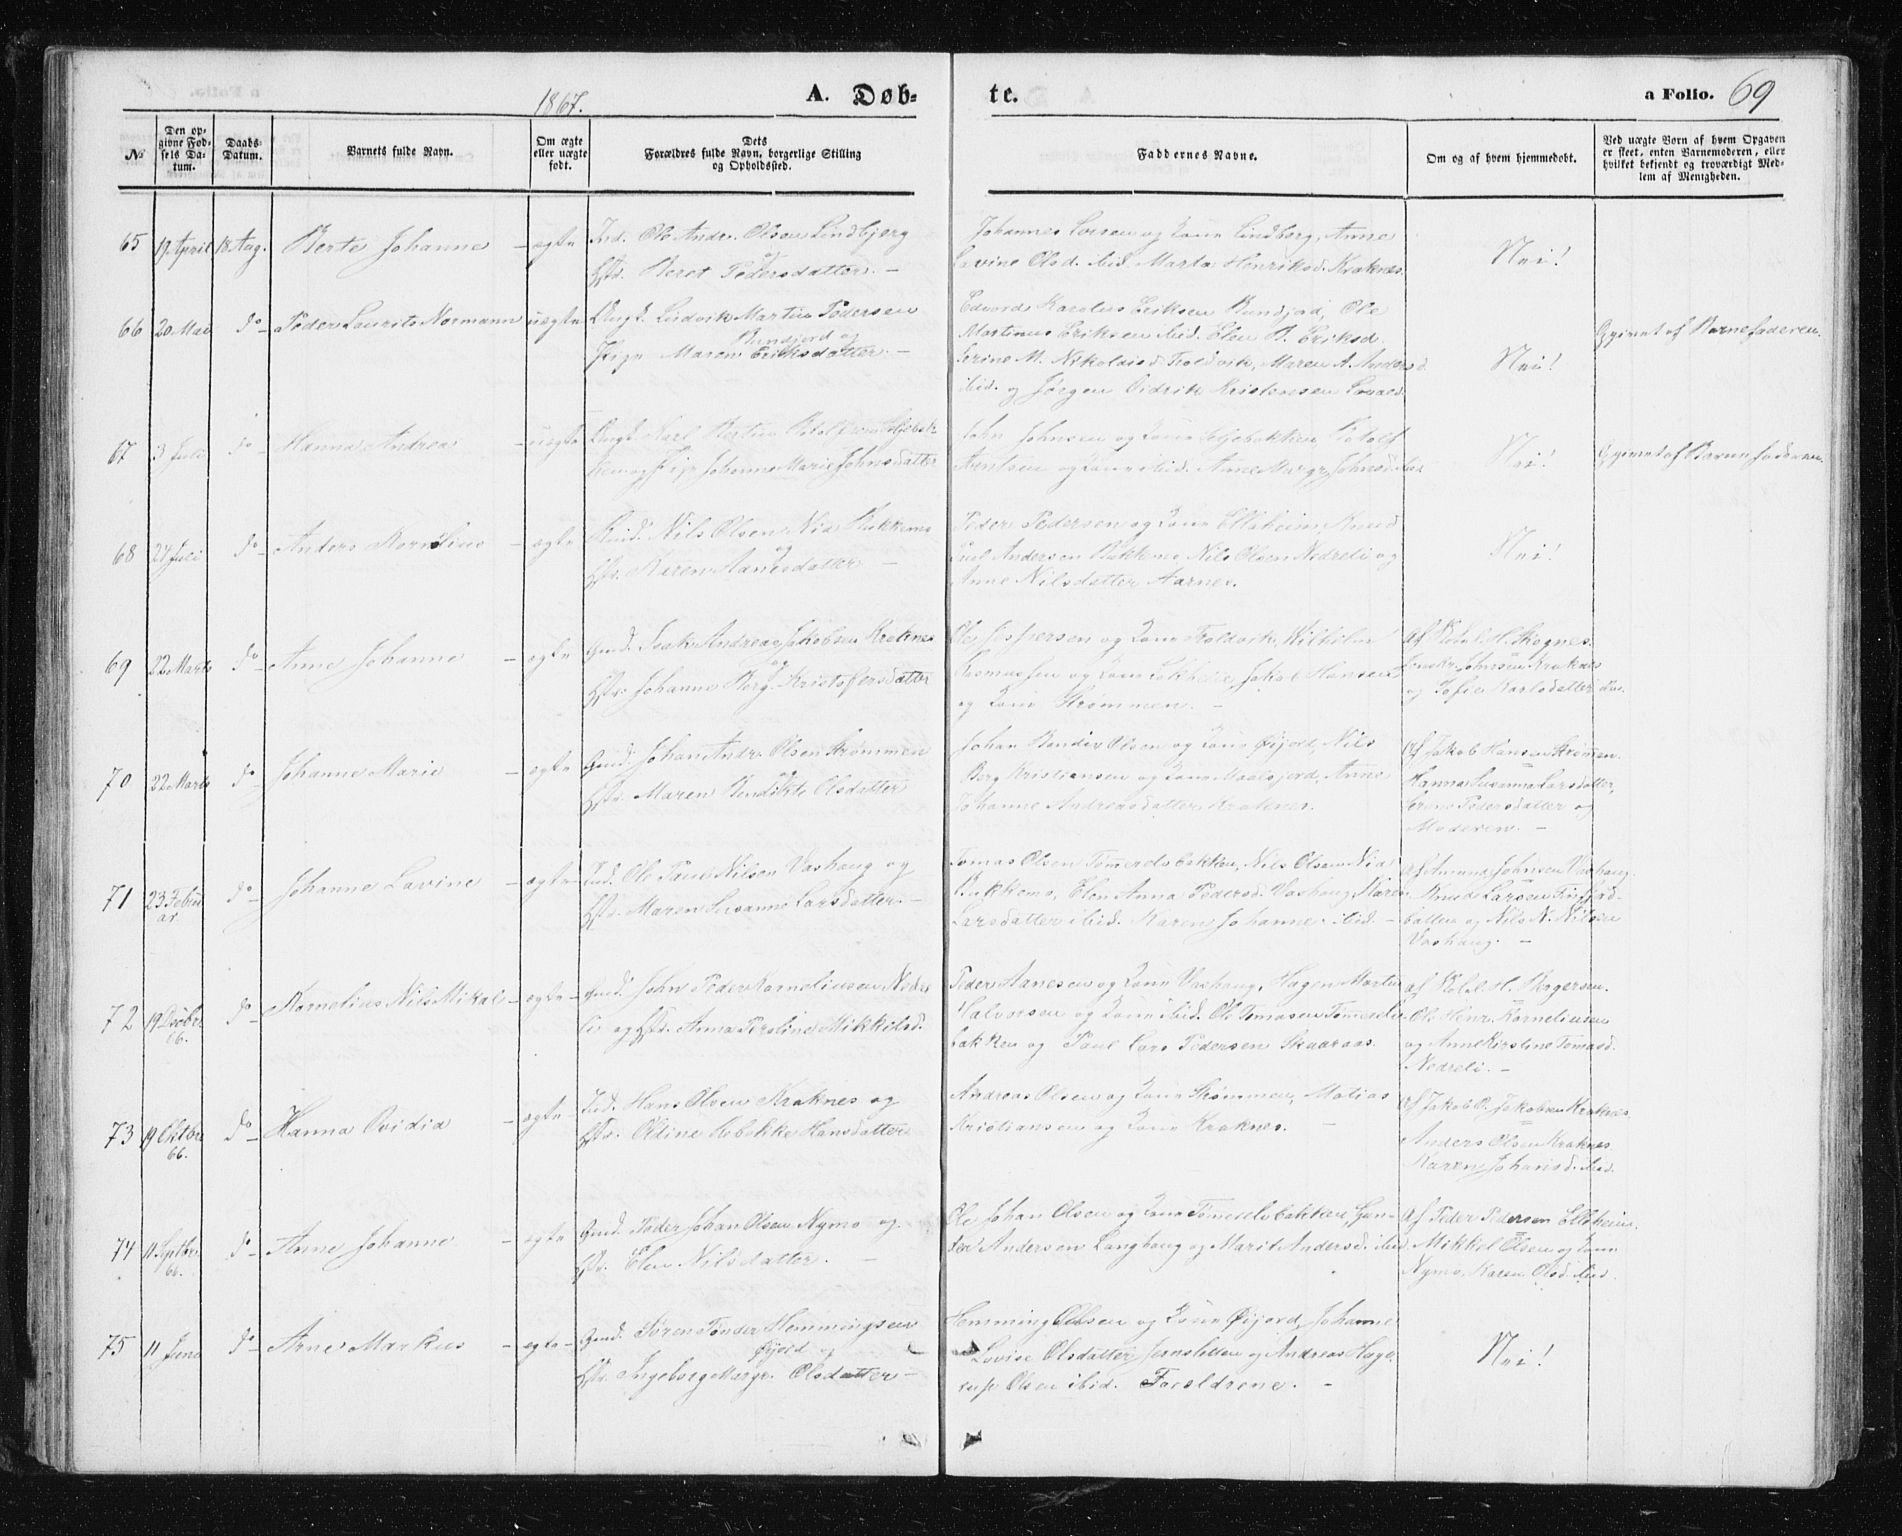 1867.
A. Døb-
te.
a Folio. 69
№
Den op-
givne Fød-
sels Da-
tum.
Daabs-
Datum.
Barnets fulde Navn.
Om ægte
eller uægte
født.
Dets
Forældres fulde Navn, borgerlige Stilling
og Opholdssted.
Faddernes Navne.
Om og af hvem hjemmedøbt.
Ved uægte Børn af hvem Opgaven
er skeet, enten Barnemoderen, eller
hvilket bekjendt og troværdigt Med-
lem af Menigheden.
65 17 April 18. Aug. Berte Johanne - ægte
Ind. Ole Andr. Olsen Lindbjerg
og
Hst. Beret Pedersdatter. -
Johannes Larsen og Kone Lindberg, Anne
Lavine Olsd. ibid. Marta Henriksd. Kraknes.
Nei!
66 20 Mai do - Peder Laurits Normann uægte
Ungk. Ludvik Martin Pedersen
Bundjord og
Pige Maren Eriksdatter. -
Edvard Karolus Eriksen Bundjod, Ole
Martinus Eriksen ibid. Elen B. Eriksd.
Serine M. Nikolaisd. Troldvik, Maren A. Andersd.
ibid. og Jørgen Didrik Kristensen
Nei!
Opgivet af Barnefaderen.
67 3 Juli do Hanna Andrea - uægte
Ungk. Karl Bertin Rotolfsen Seljebak-
ken og Pige Johanna Marie Johnsdatter
John Johnsen og Kone Seljebakken Rotolf
Arntsen og Kone ibid. Anne Margr. Johnsd. ibid.
Nei!
Opgivet af Barnefaderen.
68 27 Juli do - Anders Kornelius - ægte
Nils Olsen Nia Bukkemo
og
Hst. Karen Aanesdatter -
Peder Pedersen og Kone Elleheim, Knud
Paul Andersen Bukkemo Nils Olsen Nedreli og
Anne Nilsdatter Aarnes.
Nei!
69 22 Marts do - Anne Johanne - ægte
Gmd. Isak Andreas Jakobsen Kraknes
og
Hst. Johanna Berg. Kristofersdatter
Ole Jespersen og Kone Troldvik, Wilhelm
Rasmussen og Kone Løkhelle, Jakob Hansen
og Kone Strømmen. -
af Rebr. H. Skognes.
Johnsen Kraknes
og Sofie Karlsdatter ibid.
70 22 Marts do - Johanne Marie - ægte
Gmd. Johan Andr. Olsen Strømmen
og
Hst. Maren Bendikte Olsdatter
Johan Bendix Olsen og Kone Øijord, Nils
Berg Kristiansen og Kone Maalsjord, Anne
Johanne Andreasdatter Kraknes.
af Jakob Hansen Strømmen.
Hanna Susanna Larsdatter,
Serine Pedersdatter og
Moderen. -
71 23 Febru-
ar. do - Johanne Lavine - ægte -
Ind. Ole Paul Nilsen Vashaug og
Hst. Maren Susanne Larsdatter. -
Tomas Olsen Tømerelvbakken, Nils Olsen Nia
Bukkemo, Elen Anna Pedersd. Vashaug, Maren
Larsdatter ibid. Karen Johanne. ibid. -
af Amund Johnsen Vashaug.
Knud Larsen Finfjord-
botten og Nils N. Nilsen
Vashaug. -
72 19 Dsbber
66. do - Kornelius Nils Mikal - ægte -
Gmd. John Peder Korneliusen Nedre
li og Hst. Anna Peroline Mikkelsd.
Peder Aanesen og Kone Vashaug, Hagen Martin
Halvorsen og Kone ibid. Ole Tomasen Tømerelv-
bakken og Paul Lars Pedersen Skaaraas.
af H. Bergersen.
Ole Henr. Korneliusen
og Anne Kirstine Tomasd.
Nedreli. -
73 19 Oktbr.
66. do - Hanna Ovidia - ægte -
Ind. Hans Olsen Kraknes og
Hst. Oldine Rebekke Hansdatter
Andreas Olsen og Kone Strømmen, Matias
Kristiansen og Kone Kraknes. -
af Jakob P. Jakobsen Kraknes.
Anders Olsen Kraknes
Karen Johansd. ibid.
74 11 Septbr.
66. do - Anne Johanne - ægte
Gmd. Peder Johan Olsen Nymo og
Hst. Elen Nilsdatter. -
Ole Johan Olsen og Kone Tømerelvbakken, Gun-
der Andersen Langhaug og Marit Andersd. ibid.
af Peder Pedersen Elleheim.
Mikkel Olsen og Kone
Nymo, Karen Olsd. ibid.
75 11 Juni do - Arne Markus - ægte -
Gmd. Søren Tønder Hemmingsen
Øijord og
Hst. Ingeborg Margr. Olsdatter -
Hemming Olsen og Kone Øijord, Johanne
Lovise Olsdatter og Andreas Hage-
rup Olsen ibid. Forældrene. -
Nei!